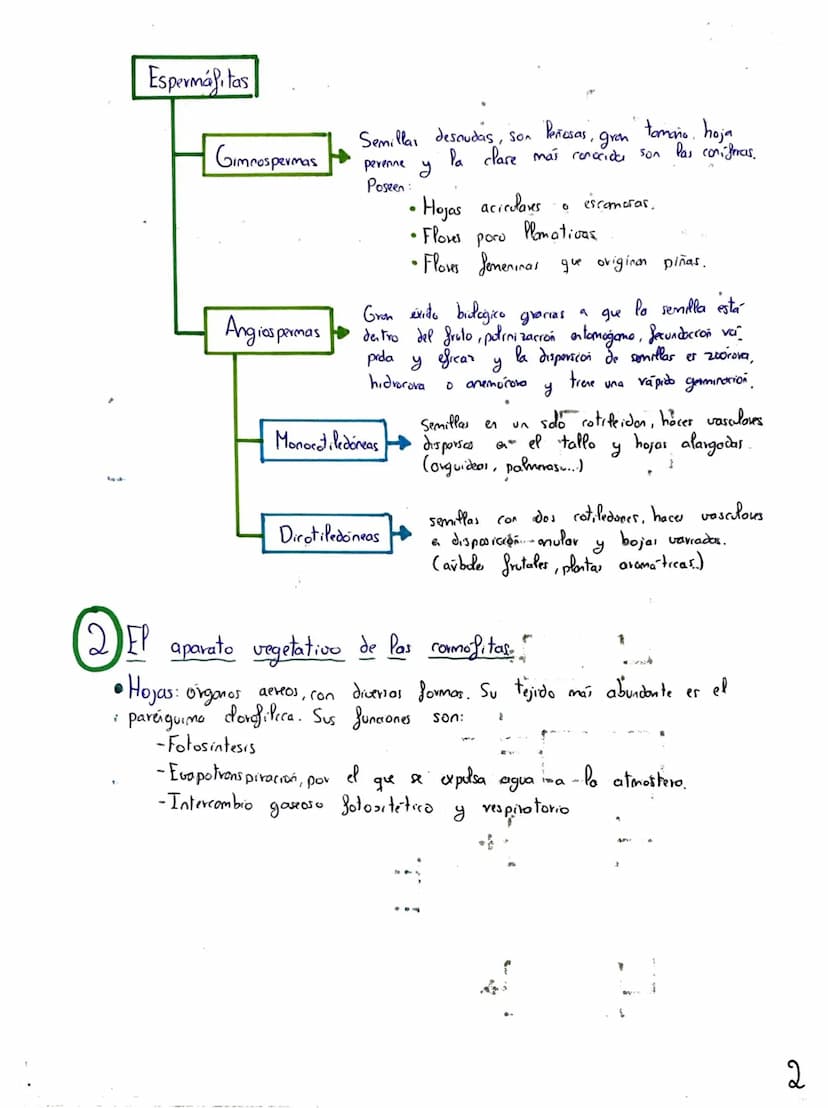 Espermáfitas
Gimnospermas
Semillas desnudas, son leñosas, gran tamaño, hoja
perenne y la clase más conocida son las coníferas.
Poseen:
• Hojas aciculares o escamosas.
• Flores poco llamativas
• Flores femeninas que originan piñas.
Angiospermas
Gran éxito biológico gracias a que la semilla está
dentro del fruto, polinización entomógama, fecundación rá
pida y eficaz y la disposición de semillas es zoócora,
hidrócora o anemócora y tiene una rápida germinación.
Monocotiledóneas
Semillas en un solo cotiledon, haces vasculares
dispersos en el tallo y hojas alargadas.
(orquídeas, palmeras...)
Dicotiledóneas
semillas con dos cotiledones, haces vasculares
en disposición anular y hojas variadas.
(árboles frutales, plantas aromáticas.)
2 El aparato vegetativo de las cormofitas.
• Hojas: órganos aereos, con diversas formas. Su tejido más abundante es el
parénquima clorofílica. Sus funciones son:
- Fotosíntesis
- Evapotranspiración, por el que se expulsa agua a la atmosfera.
- Intercambio gaseoso fotositético y respiratorio
2